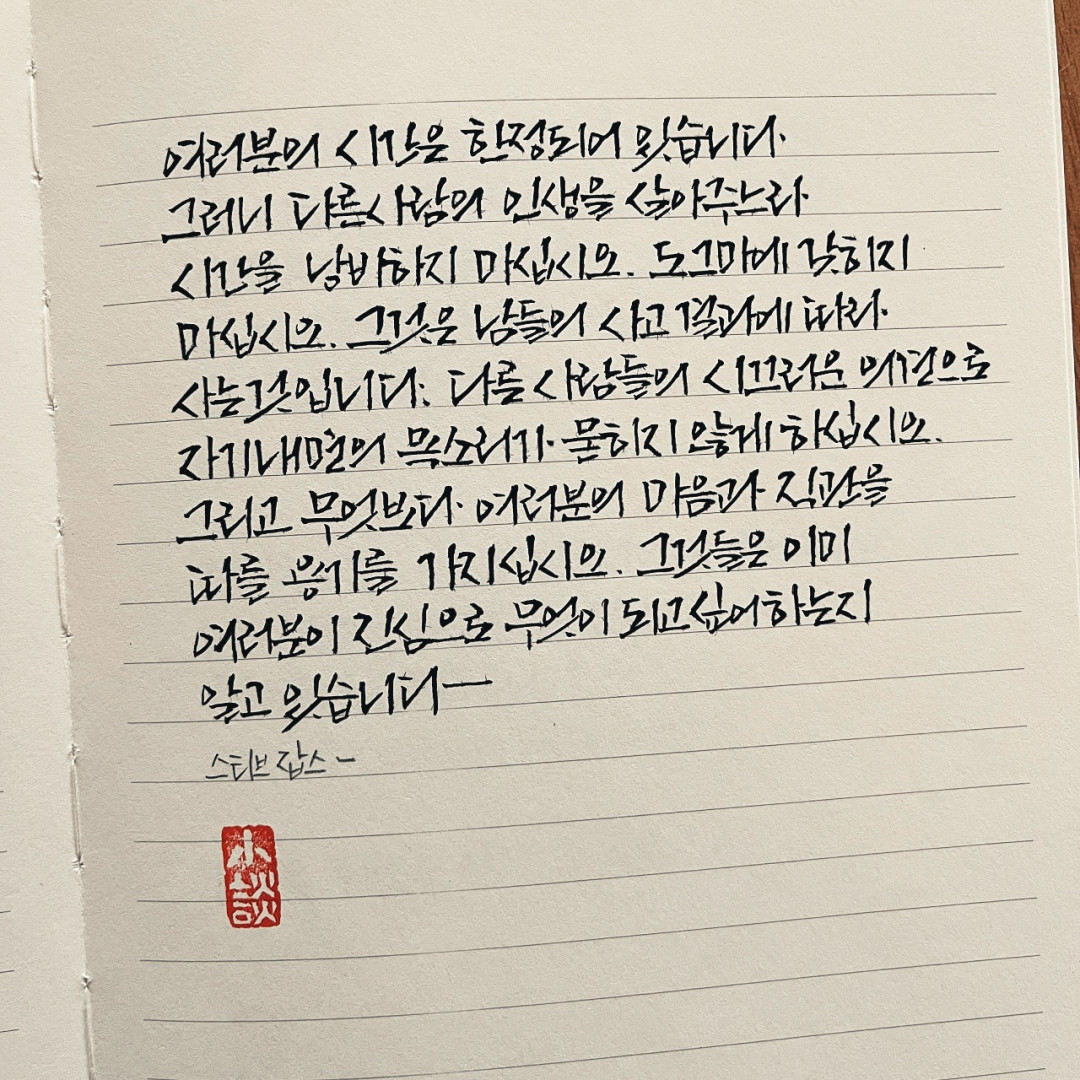 여러분의 시간은 한정되어 있습니다.
그러니 다른사람의 인생을 살아주느라
시간을 낭비하지 마십시오. 도그마에 갖히지
마십시오. 그것은 남들의 사고 결과에 따라
사는것입니다. 다른 사람들의 시끄러운 의견으로
자기내면의 목소리가 묻히지 않게 하십시오.
그리고 무엇보다 여러분의 마음과 직관을
따를 용기를 가지십시오. 그것들은 이미
여러분이 진심으로 무엇이 되고싶어하는지
알고 있습니다—
스티브 잡스 -